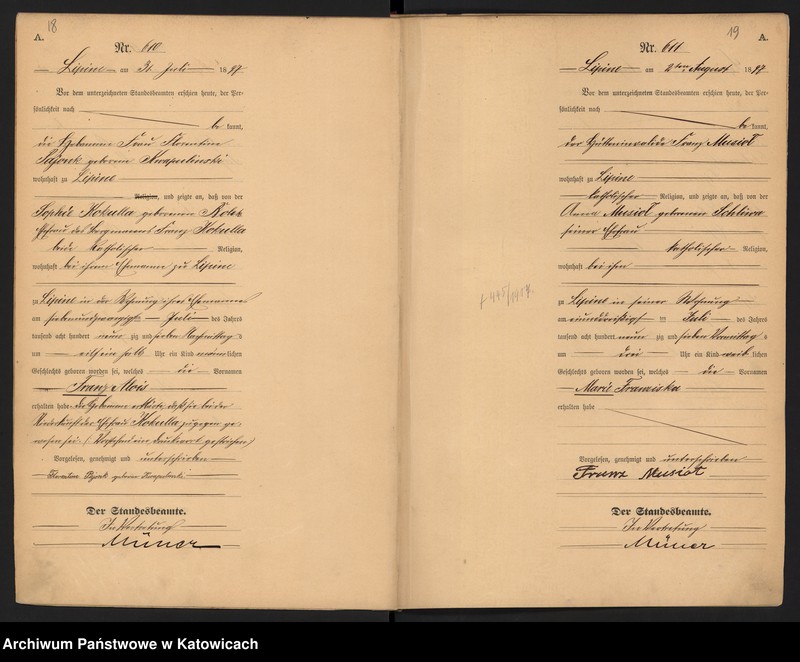 18
A.
Nr. 610
Lipine am 31 Juli 1897
Vor dem unterzeichneten Standesbeamten erschien heute, der Per-
sönlichkeit nach
be kannt,
die Hebamme Frau Florentine
geborene
wohnhaft zu Lipine
Religion, und zeigte an, daß von der
Sophie Kokulla geborenen
Ehefrau des Bergmanns Franz Kokulla
beide katholischer Religion,
wohnhaft bei ihrem Ehemanne zu Lipine
zu Lipine in der Wohnung ihres Ehemannes
am siebenundzwanzigsten Juli des Jahres
tausend acht hundert neun zig und sieben Nachmittags
um eilfeinhalb Uhr ein Kind männlichen
Geschlechts geboren worden sei, welches die Vornamen
Franz Alois
erhalten habe. Die Hebamme erklärte, daß sie bei der
Niederkunft der Ehefrau Kokulla zugegen ge-
wesen sei. (Vorstehend ein Druckwort gestrichen)
Vorgelesen, genehmigt und unterschrieben
Florentine geborene
Der Standesbeamte.
In Vertretung
Müner
19
A.
Nr. 611
Lipine am 2ten August 1897
Vor dem unterzeichneten Standesbeamten erschien heute, der Per-
sönlichkeit nach
be kannt,
der Hütteninvalide Franz Musiol
wohnhaft zu Lipine
katholischer Religion, und zeigte an, daß von der
Anna Musiol geborenen
seiner Ehefrau
katholischer Religion,
wohnhaft bei ihm
zu Lipine in seiner Wohnung
am einunddreißigsten Juli des Jahres
tausend acht hundert neun zig und sieben Vormittags
um drei Uhr ein Kind weiblichen
Geschlechts geboren worden sei, welches die Vornamen
Marie Franziska
erhalten habe
Vorgelesen, genehmigt und unterschrieben
Franz Musiol
Der Standesbeamte.
In Vertretung
Müner
Archiwum Państwowe w Katowicach